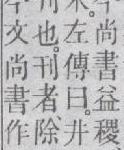 今尚書益稷
木。左傳曰。井
刊也。刊者、除
今文尚書作